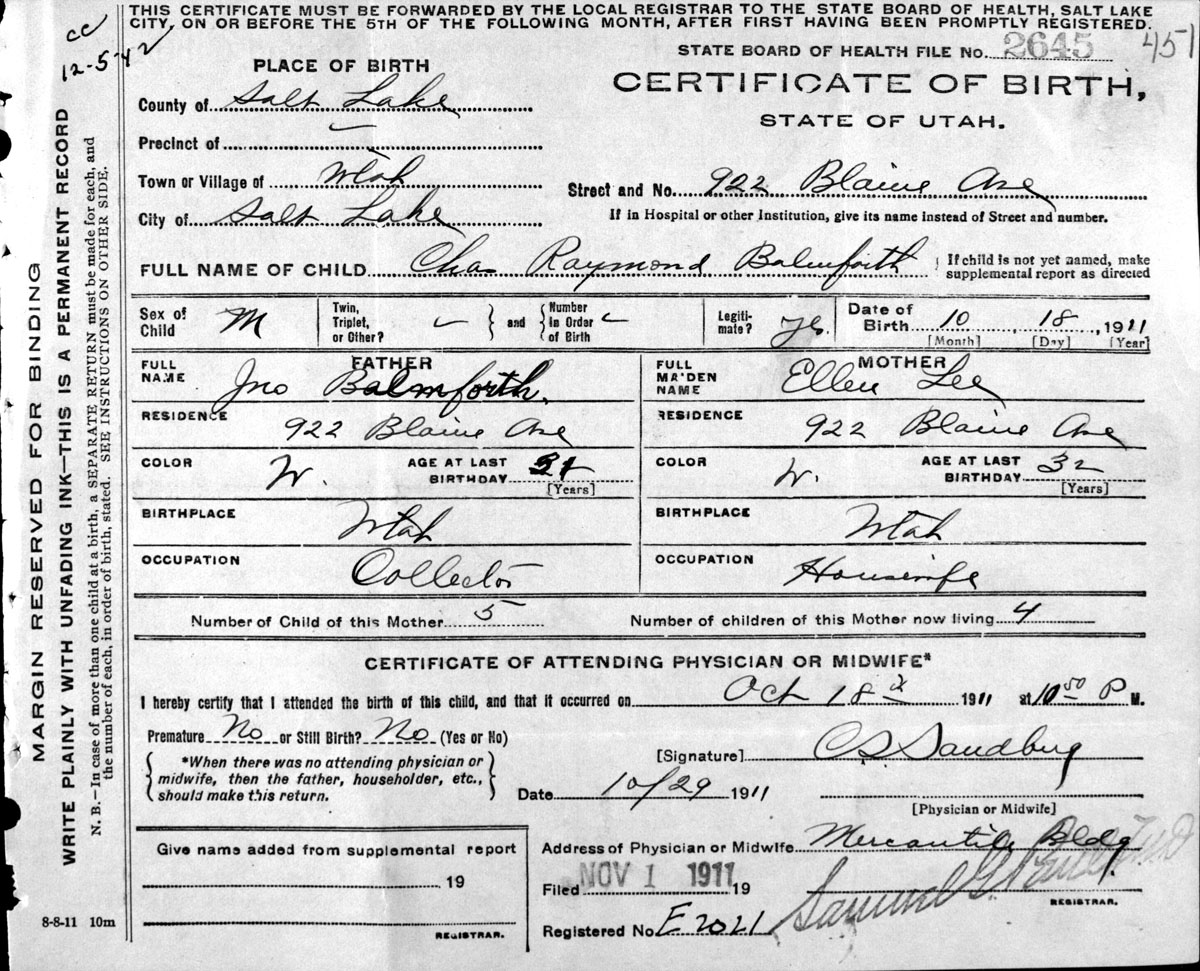 THIS CERTIFICATE MUST BE FORWARDED BY THE LOCAL REGISTRAR TO THE STATE BOARD OF HEALTH, SALT LAKE
CITY, ON OR BEFORE THE 5TH OF THE FOLLOWING MONTH, AFTER FIRST HAVING BEEN PROMPTLY REGISTERED.
cc
12-5-42
STATE BOARD OF HEALTH FILE No. 2645 451
PLACE OF BIRTH
CERTIFICATE OF BIRTH,
STATE OF UTAH.
County of Salt Lake
Precinct of
Town or Village of Utah
Street and No. 922 Blaine Ave
City of Salt Lake
If in Hospital or other Institution, give its name instead of Street and number.
FULL NAME OF CHILD Chas Raymond Balmforth
If child is not yet named, make
supplemental report as directed
Sex of
Child M
Twin,
Triplet,
or Other?
and
Number
in Order
of Birth
Legiti-
mate? Yes
Date of
Birth 10, 18, 1911
[Month] [Day] [Year]
FATHER
FULL
NAME Jno Balmforth.
MOTHER
FULL
MAIDEN
NAME Ellen Lee
RESIDENCE
922 Blaine Ave
RESIDENCE
922 Blaine Ave
COLOR W.
AGE AT LAST
BIRTHDAY
[Years]
COLOR W.
AGE AT LAST
BIRTHDAY 32
[Years]
BIRTHPLACE
Utah
BIRTHPLACE
Utah
OCCUPATION
Collector
OCCUPATION
Housewife
Number of Child of this Mother 5
Number of children of this Mother now living 4
CERTIFICATE OF ATTENDING PHYSICIAN OR MIDWIFE*
I hereby certify that I attended the birth of this child, and that it occurred on Oct 18 1911 at 10 50 P M.
Premature No or Still Birth? No (Yes or No)
*When there was no attending physician or
midwife, then the father, householder, etc.,
should make this return.
[Signature] C S Sandberg
Date 10/29 1911
[Physician or Midwife]
Give name added from supplemental report
19
REGISTRAR.
8-8-11 10m
Address of Physician or Midwife Mercantile Bldg.
Filed NOV 1 1911 19
Samuel G.
REGISTRAR.
Registered No. E2021
MARGIN RESERVED FOR BINDING
WRITE PLAINLY WITH UNFADING INK—THIS IS A PERMANENT RECORD
N. B.—In case of more than one child at a birth, a SEPARATE RETURN must be made for each, and
the number of each, in order of birth, stated. SEE INSTRUCTIONS ON OTHER SIDE.